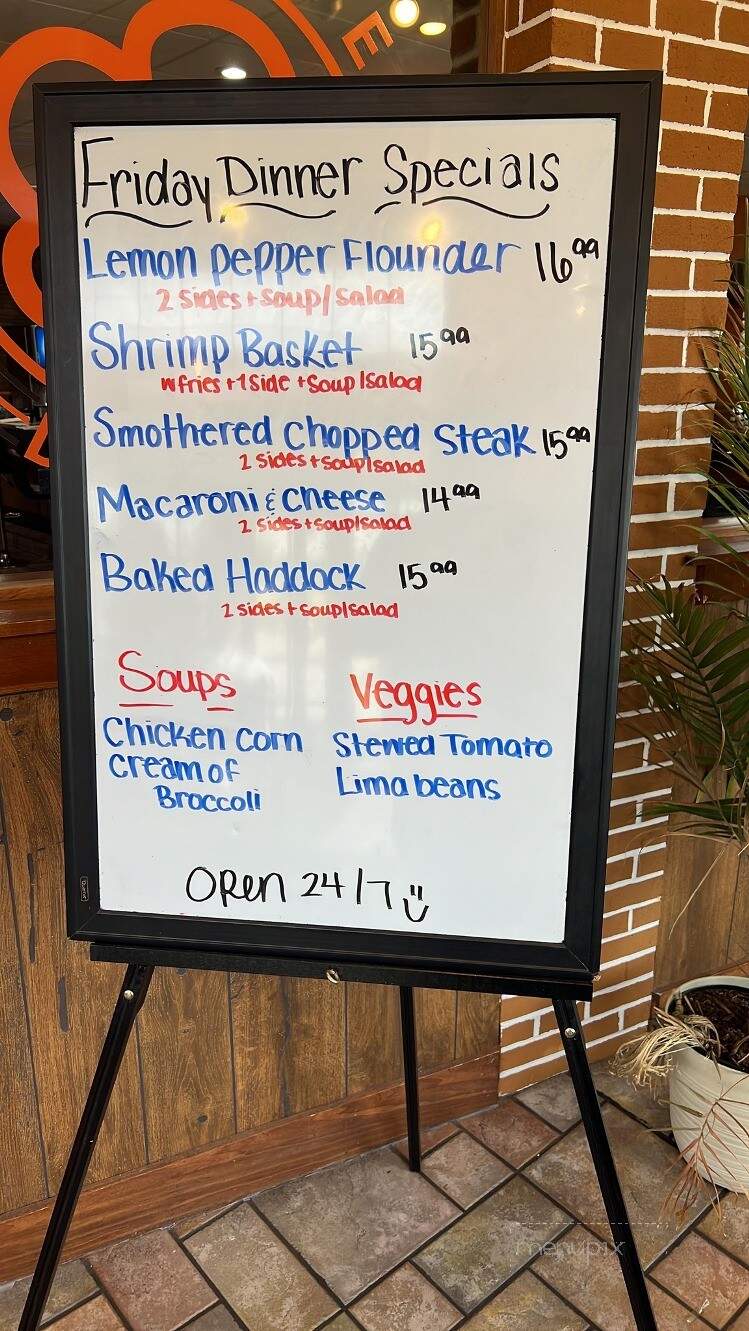 E
Friday Dinner Specials
Lemon pepper Flounder 16.99
2 sides + soup/salad
Shrimp Basket 15.99
w fries + 1 side + soup/salad
Smothered chopped steak 15.99
2 sides + soup/salad
Macaroni & cheese 14.99
2 sides + soup/salad
Baked Haddock 15.99
2 sides + soup/salad
Soups
Veggies
Chicken corn
Stewed Tomato
cream of
Broccoli
Lima beans
Open 24/7
menupix